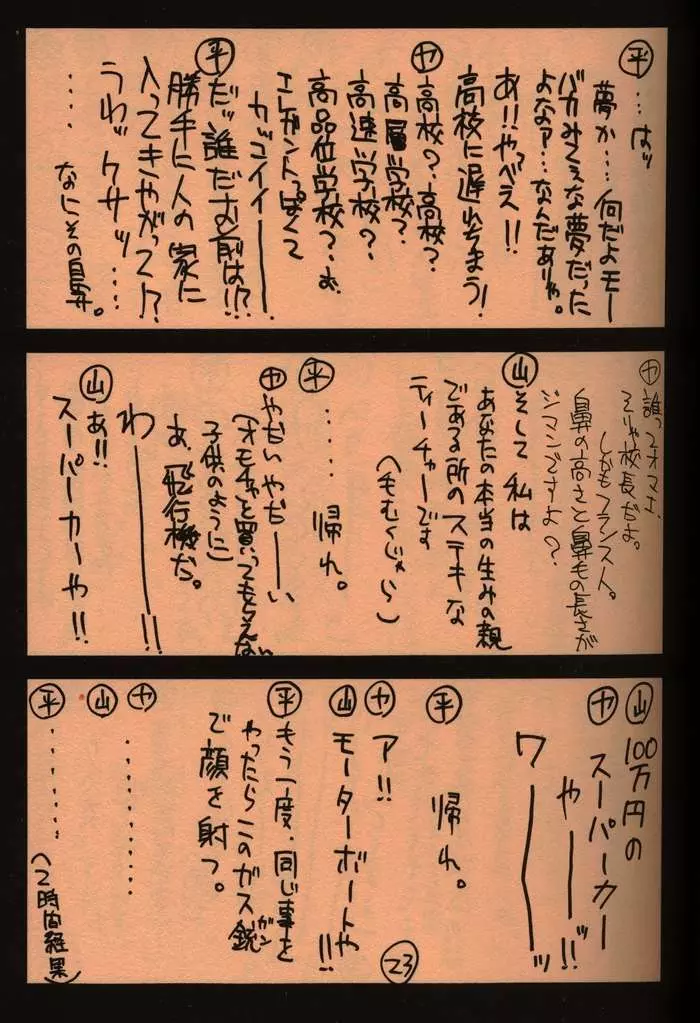 ㊥平 …はッ
夢か…何だよモー
バカみてぇな夢だった
よなァ…なんだありゃ。
あ!!やっべえ!!
高校に遅れちまう!
ヤ 高校?高校?
高層学校?
高速学校?
高品位学校?お、
エレガントっぽくて
カッコイイー
平 だッ誰だお前は!?
勝手に人の家に
入ってきやがって!?
うわッケサッ…
‥‥なにその鼻。
ヤ 誰ってオマエ、
そりゃ校長だよ。
しかもフランス人。
鼻の高さと鼻毛の長さが
ジマンですよ?
山 そして私は
あなたの本当の生みの親
である所のステキな
ティーチャーです
(毛むくじゃら)
平 ‥‥‥帰れ。
ヤ やだいやだーい
(オモチャを買ってもらえない
子供のように)
あ、飛行機だ。
わーーー!!
山 あ!!
スーパーカーや!!
山 100万円の
ヤ スーパーカー
やーーッ!!
ワーーーッ
平 帰れ。
ヤ ア!!
山 モーターボートや!!
平 もう一度、同じ事を
やったらこのガス銃
ガン
で顔を射つ。
ヤ ‥‥‥‥‥
山
平 ‥‥‥‥‥
(2時間経果)
23